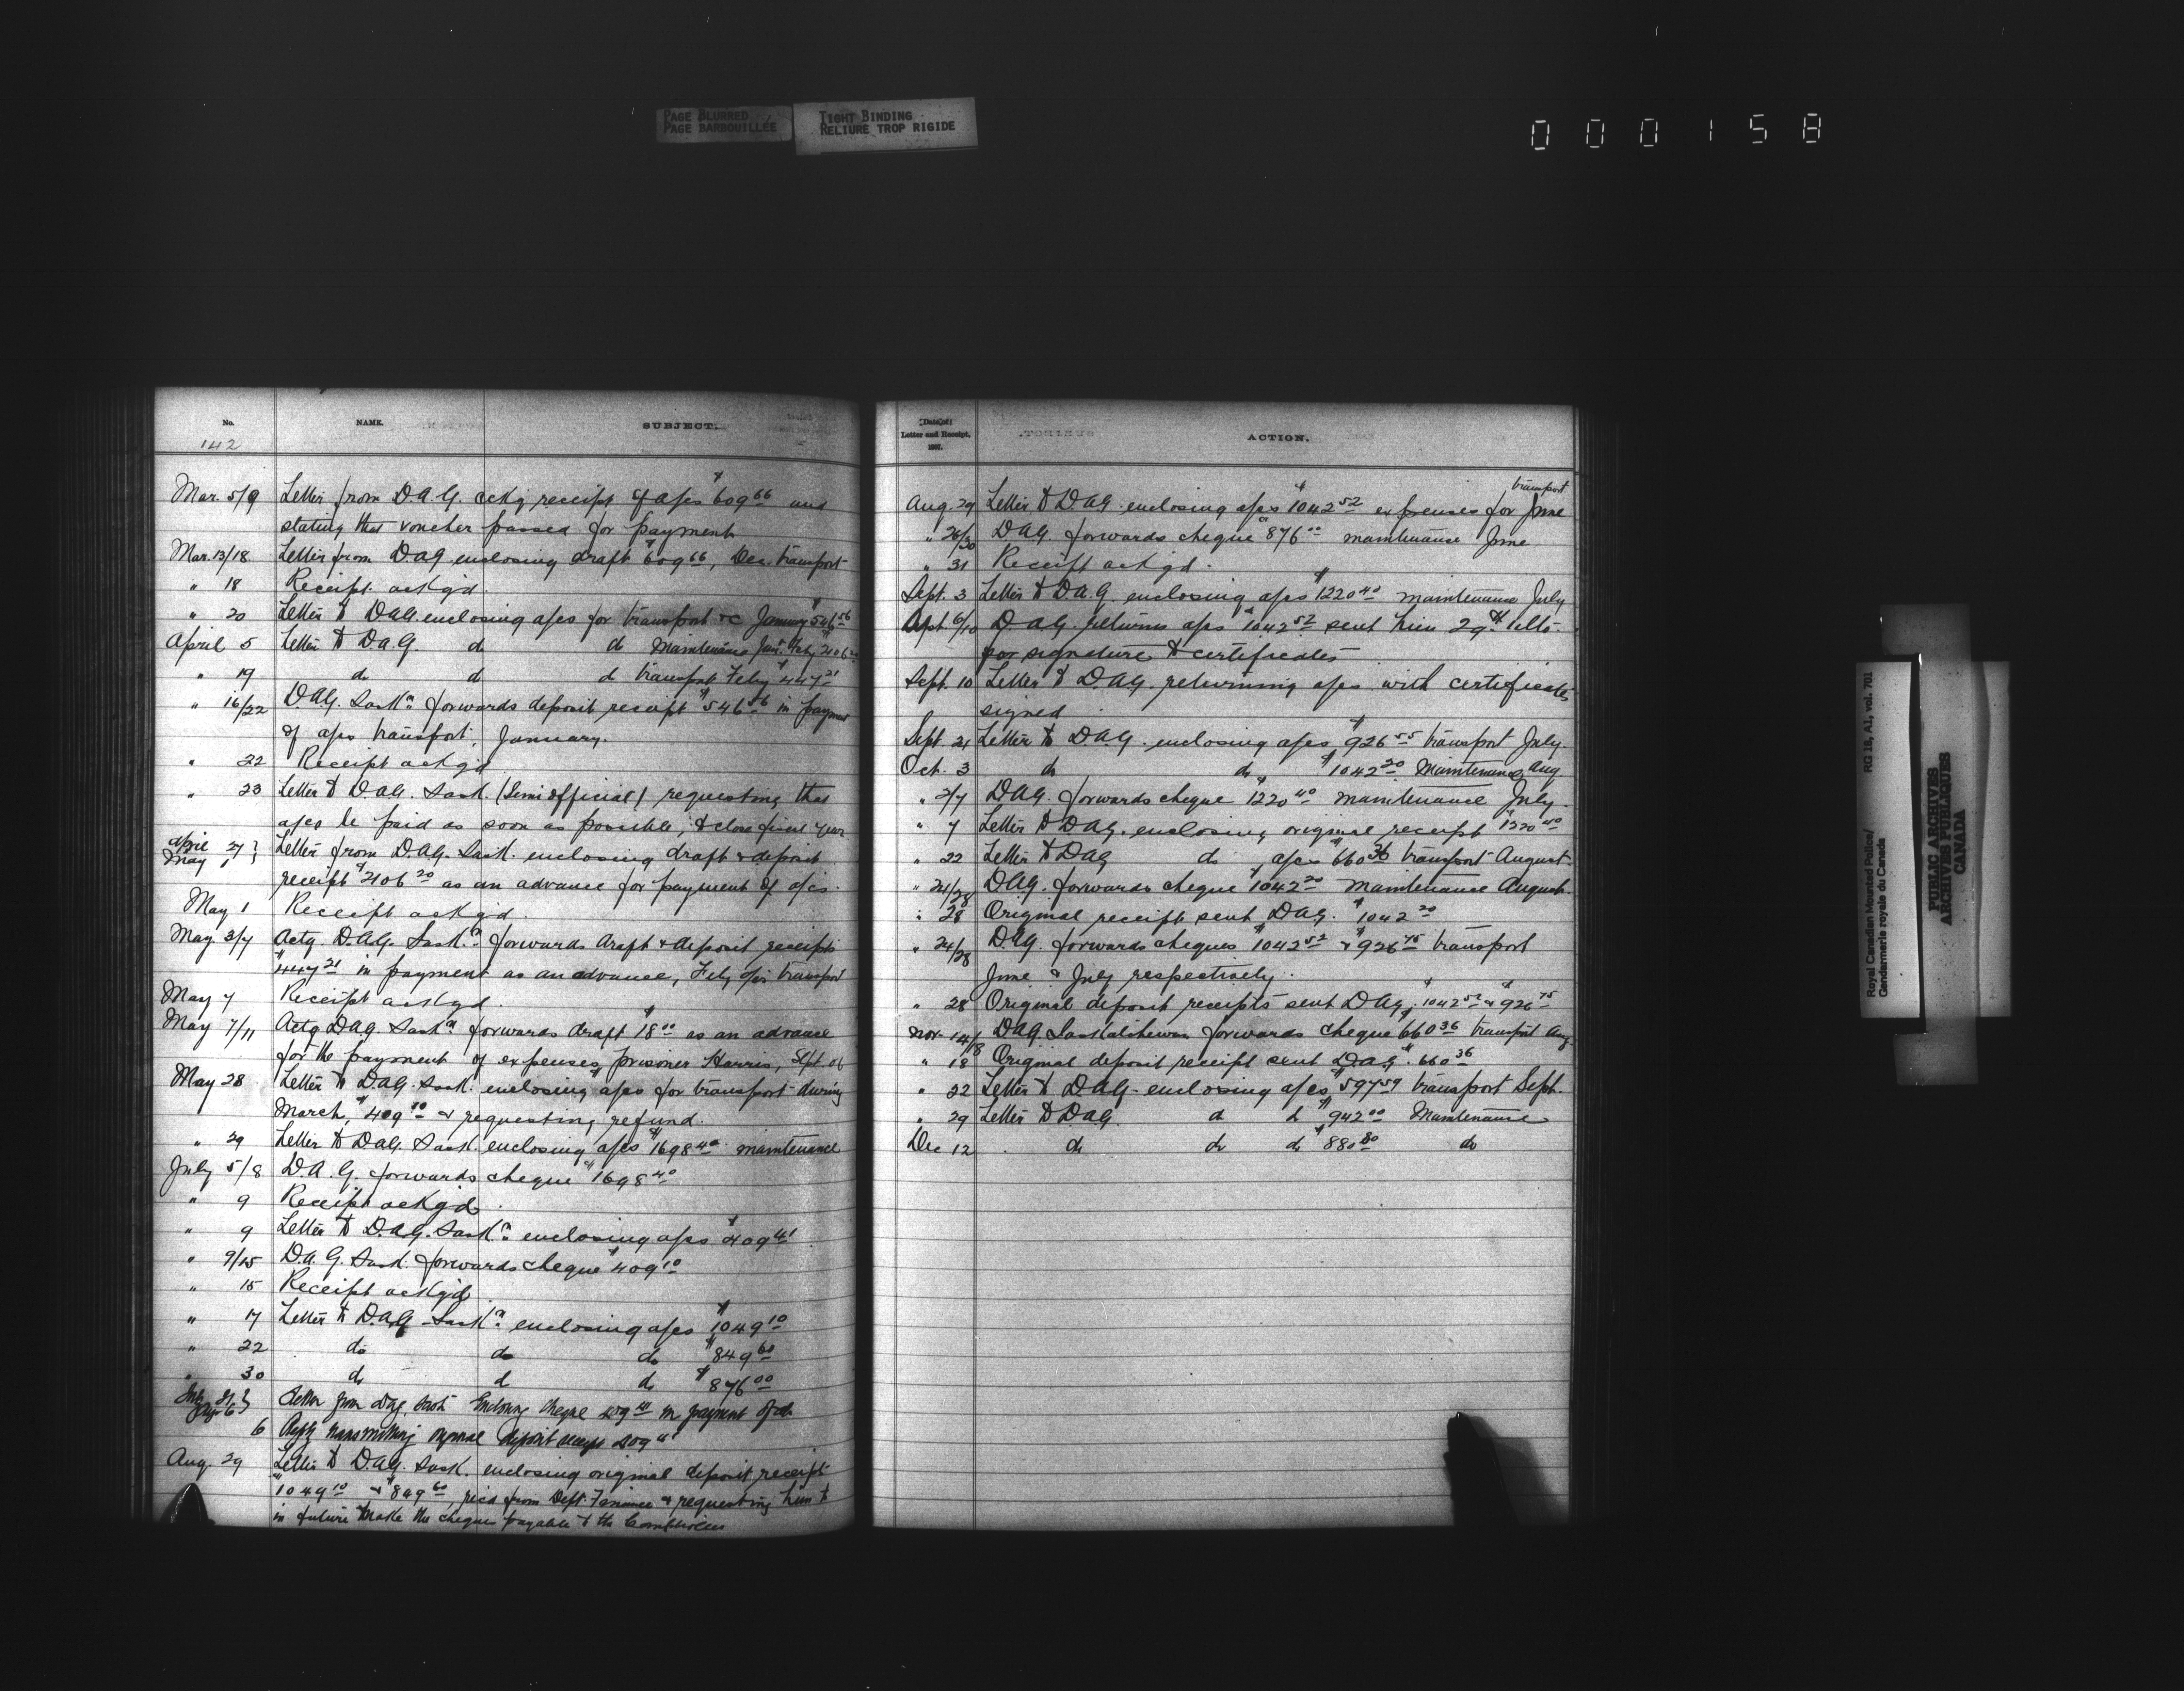 PAGE BLURRED
PAGE BARBOUILLÉE
TIGHT BINDING
RELIURE TROP RIGIDE
000158
No.
NAME.
SUBJECT.
142
Mar. 5/9 Letter from D.A.G. ackg receipt of a/cs $609 66 and
stating that voucher passed for payment
Mar. 13/18 Letter from D.A.G. enclosing draft $609 66, Dec. transport
" 18 Receipt ackgd.
" 20 Letter to D.A.G. enclosing a/cs for transport &c January $546 56
April 5 Letter to D.A.G. do do Maintenance Jan. & Feby 2106 20
" 19 do do do transport Feby $447 21
" 16/22 D.A.G. Sask n forwards deposit receipt $546 56 in payment
of a/cs transport, January.
" 22 Receipt ackgd
" 23 Letter to D.A.G. Sask. (Semi official) requesting that
a/cs be paid as soon as possible, to close fiscal year
April 27 }
May 1 } Letter from D.A.G. Sask. enclosing draft & deposit
receipt $2106 20 as an advance for payment of a/cs.
May 1 Receipt ackgd.
May 3/7 Actg. D.A.G. Sask n forwards draft & deposit receipts
$447 21 in payment as an advance, Feby a/cs transport
May 7 Receipt ackgd.
May 7/11 Actg D.A.G. Sask n forwards draft $18 00 as an advance
for the payment of expenses, prisoner Harris, Sept 06
May 28 Letter to D.A.G. Sask. enclosing a/cs for transport during
March, $409 10 & requesting refund.
" 29 Letter to D.A.G. Sask. enclosing a/cs $1698 40 maintenance
July 5/8 D.A.G. forwards cheque $1698 40
" 9 Receipt ackgd.
" 9 Letter to D.A.G. Sask n enclosing a/cs $209 41
" 9/15 D.A.G. Sask. forwards cheque $409 10
" 15 Receipt ackgd
" 17 Letter to D.A.G. Sask n enclosing a/cs $1049 10
" 22 do do do $849 60
" 30 do do do $876 00
July 31 }
Aug 6 } Letter from D.A.G. Sask. Enclosing cheque 209 41 in payment of
6 Reply transmitting original deposit receipt 209 41
Aug. 29 Letter to D.A.G. Sask. enclosing original deposit receipt
$1049 10 & $849 60, recd from Dept. Finance & requesting him to
in future make the cheque payable to the Comptroller
Date of
Letter and Receipt.
1907.
ACTION.
transport
Aug. 29 Letter to D.A.G. enclosing a/cs $1042 52 expenses for June
" 26/30 D.A.G. forwards cheque $876 00 maintenance June
" 31 Receipt ackgd.
Sept. 3 Letter to D.A.G. enclosing a/cs $1220 40 maintenance July
Sept 6/10 D.A.G. returns a/cs $1042 52 sent him 29th ulto.
for signature to certificates
Sept. 10 Letter to D.A.G. returning a/cs with certificates
signed
Sept. 21 Letter to D.A.G. enclosing a/cs $926 55 transport July.
Oct. 3 do do $1042 20 Maintenance Aug
" 2/7 D.A.G. forwards cheque $1220 40 maintenance July.
" 7 Letter to D.A.G. enclosing original receipt $1220 40
" 22 Letter to D.A.G do a/cs $660 36 transport August
" 24/28 D.A.G. forwards cheque $1042 20 maintenance August.
" 28 Original receipt sent D.A.G. $1042 20
" 24/28 D.A.G. forwards cheques $1042 52 & $926 75 transport
June & July respectively.
" 28 Original deposit receipts sent D.A.G. $1042 52 & $926 75
Nov. 14/18 D.A.G. Saskatchewan forwards cheque $660 36 transport Aug.
" 18 Original deposit receipt sent D.A.G. $660 36
" 22 Letter to D.A.G. enclosing a/cs $597 59 transport Sept.
" 29 Letter to D.A.G. do do $942 00 Maintenance
Dec 12 do do do $880 80 do
Royal Canadian Mounted Police/
Gendarmerie royale du Canada
RG 18, A1, vol. 701
PUBLIC ARCHIVES
ARCHIVES PUBLIQUES
CANADA